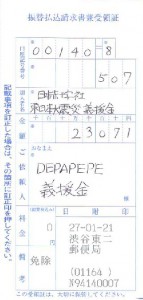 振替払込請求書兼受領証
口座記号番号
00140-8
507
加入者名
日本赤十字社
東日本大震災義援金
金額
23071
ご依頼人
おなまえ
DEPAPEPE
義援金
料金
0
円
備考
免除
日附印
27-01-21
渋谷東二
郵便局
(01164)
N94140007
この受領証は、大切に保管してください。
記載事項を訂正した場合は、その箇所に訂正印を押してください。